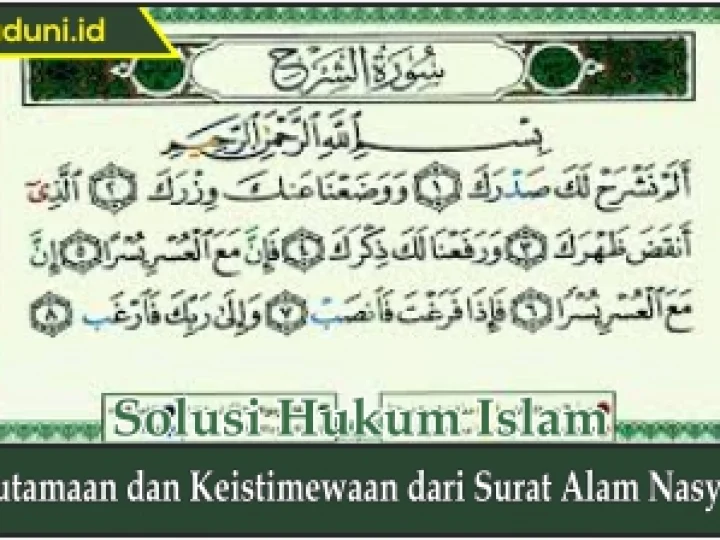 duni.id
سُورَةُ الشَّرْحِ
بِسْمِ ٱللَّهِ ٱلرَّحْمَٰنِ ٱلرَّحِيمِ
أَلَمْ نَشْرَحْ لَكَ صَدْرَكَ ١ وَوَضَعْنَا عَنكَ وِزْرَكَ ٢ ٱلَّذِىٓ
أَنقَضَ ظَهْرَكَ ٣ وَرَفَعْنَا لَكَ ذِكْرَكَ ٤ فَإِنَّ مَعَ ٱلْعُسْرِ يُسْرًا ٥ إِنَّ
مَعَ ٱلْعُسْرِ يُسْرًا ٦ فَإِذَا فَرَغْتَ فَٱنصَبْ ٧ وَإِلَىٰ رَبِّكَ فَٱرْغَب ٨
Solusi Hukum Islam
utamaan dan Keistimewaan dari Surat Alam Nasy